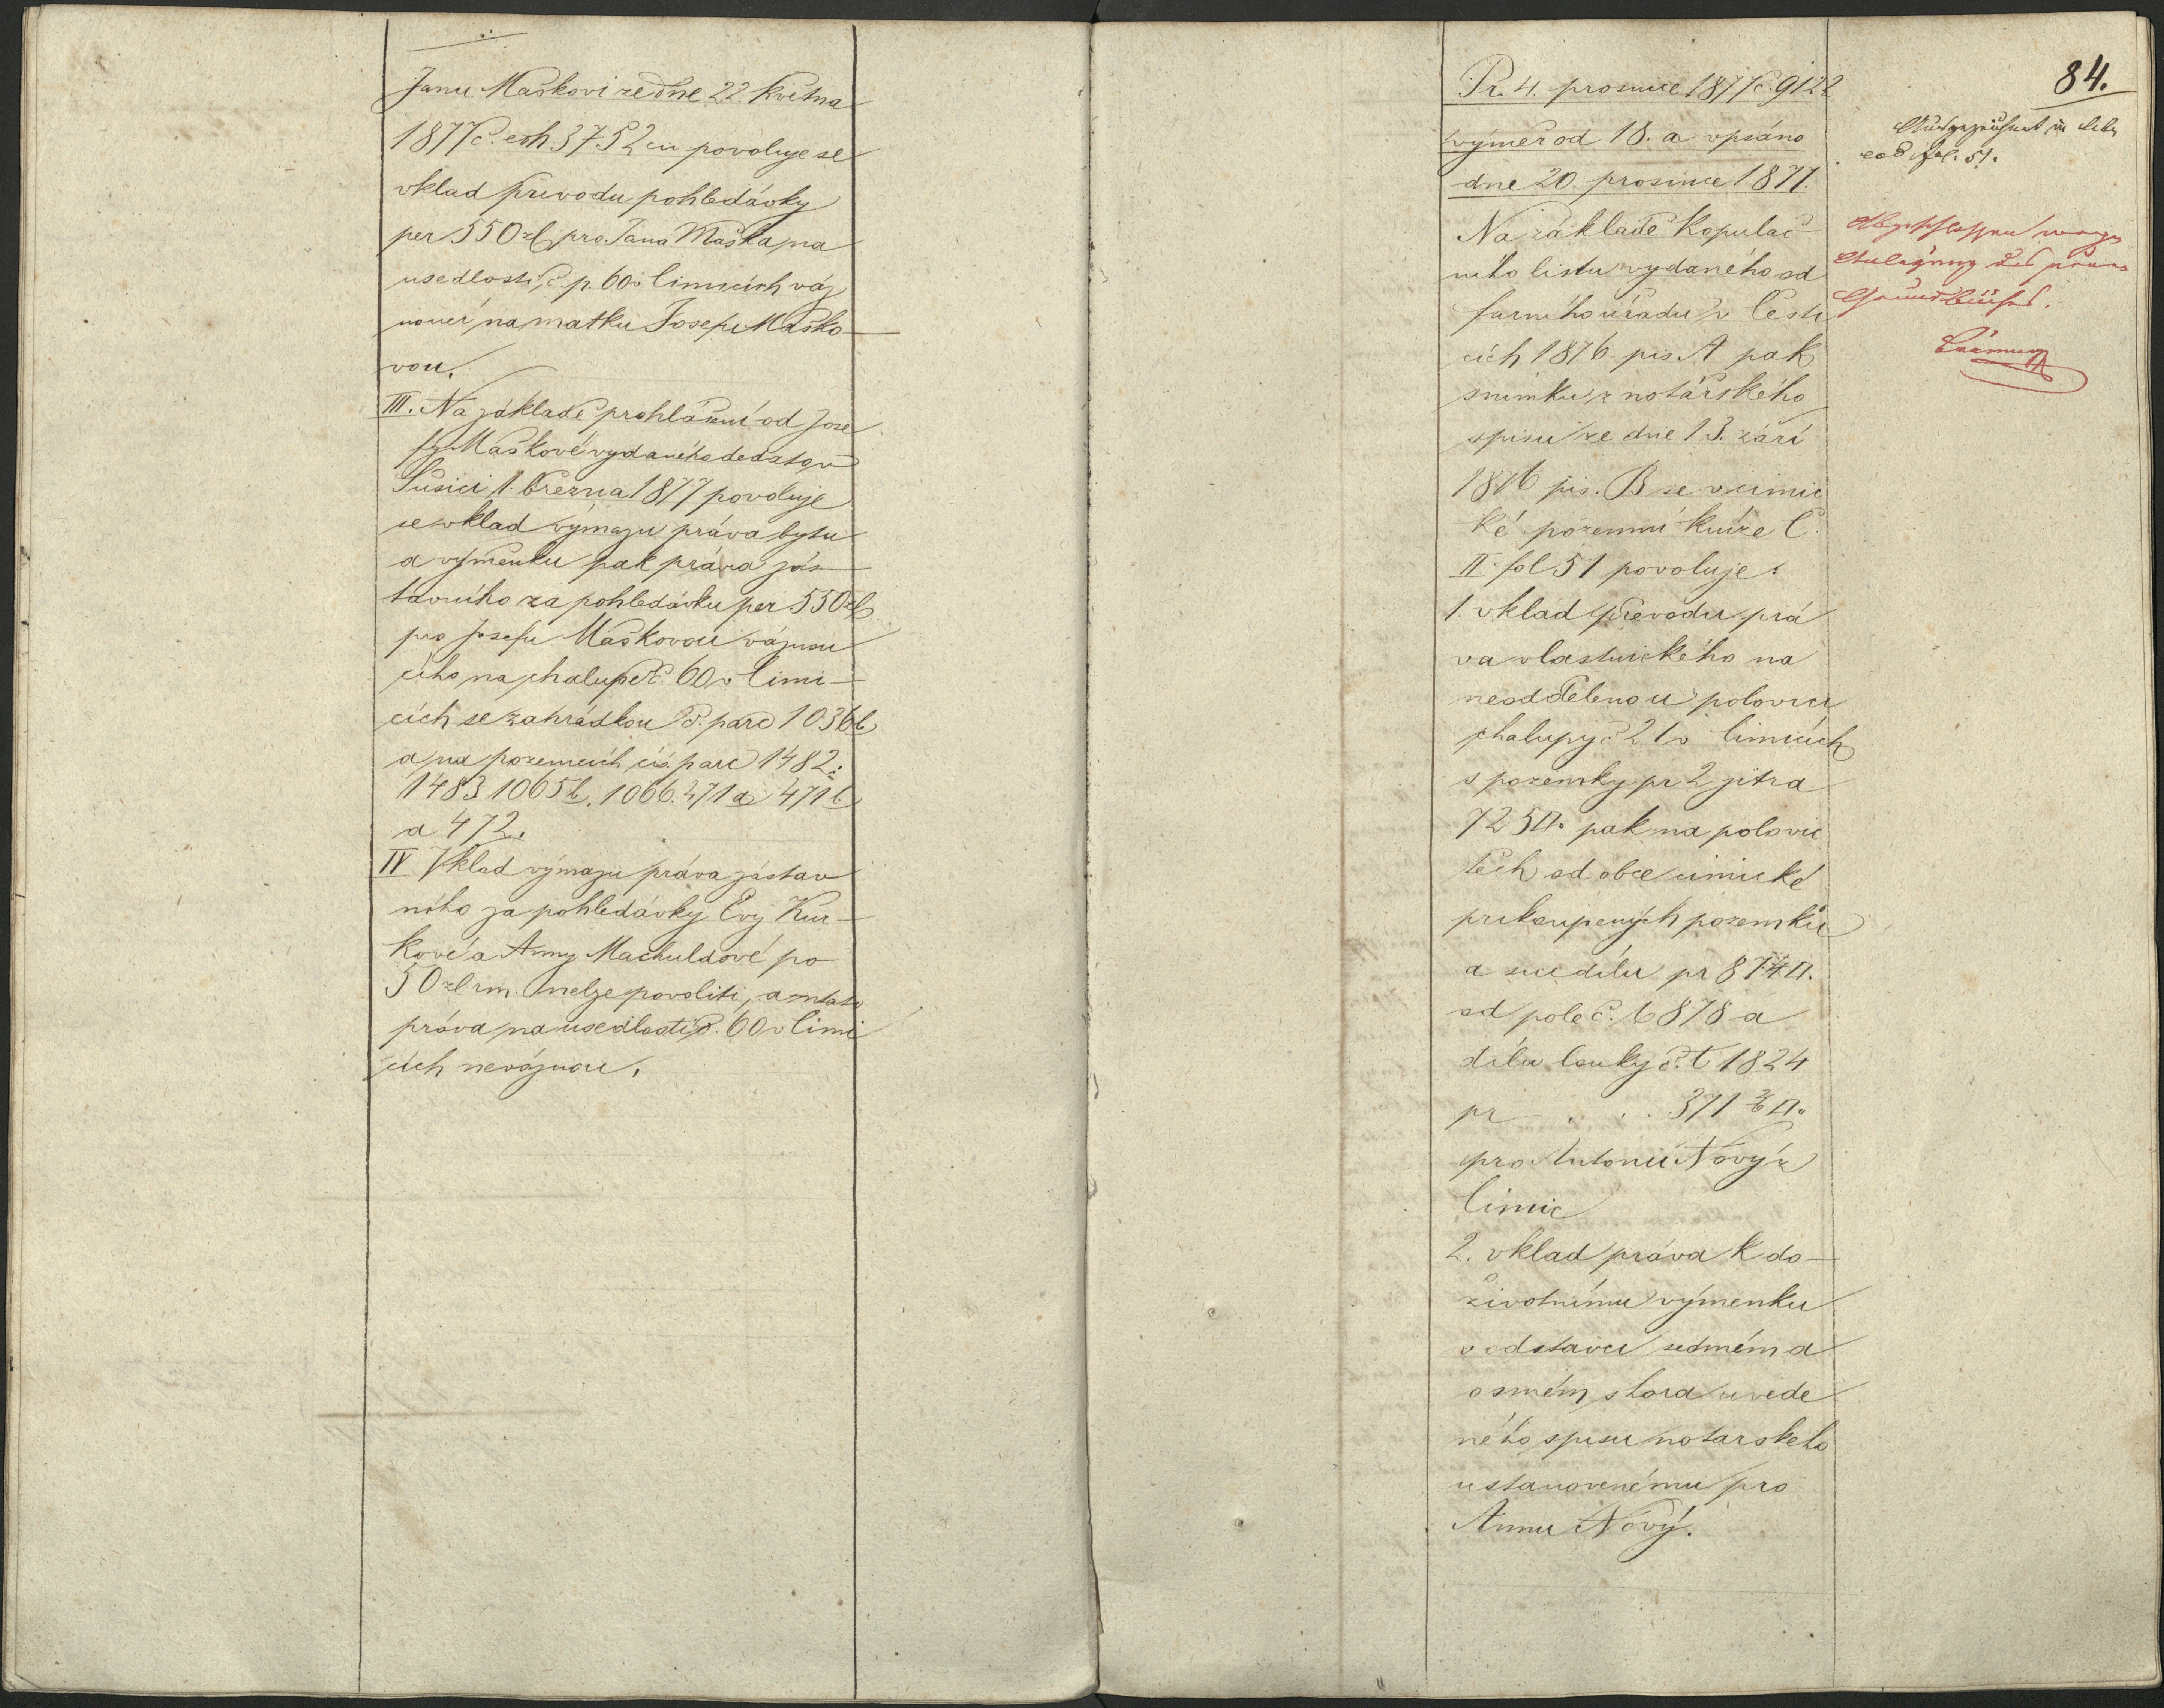 Janu Maškovi ze dne 22. května
1877 č. exh 3752 cu povoluje se
vklad převodu pohledávky
per 550 zl pro Jana Maška na
usedlosti č. p. 60 v Čimicích váz
noucí na matku Josefu Maško-
vou.
III. Na základě prohlášení od Jose
fy Maškové vydaného de dato v
Sušici 1. března 1877 povoluje
se vklad výmazu práva bytu
a výmenku pak práva zás-
tavního za pohledávku per 550 zl
pro Josefu Maškovou váznou
cího na chalupě č. 60 v Čimi-
cích se zahrádkou č. parc 1036 b
a na pozemcích čís. parc 1482:
1483 1065 b, 1066. 471 a 471 b
a 472.
IV Vklad výmazu práva zástav
ního za pohledávky Evy Kur-
kové a Anny Machuldové po
50 zl rm. nelze povoliti, an tato
práva na usedlosti č. 60 v Čimi
cích neváznou.
84.
Pr. 4. prosince 1877 č. 9122
výměr od 18. a vpsáno
dne 20. prosince 1877.
Na základě kopulač-
ního listu vydaného od
farního úřadu v Česti
cích 1876 pis. A pak
snímku z notářského
spisu ze dne 13. září
1876 pis. B se v čimic
ké pozemní knize C.
II fol 51 povoluje:
1. vklad převodu prá
va vlastnického na
neoddělenou polovici
chalupy č 21 v Čimicích
s pozemky pr 2 jitra
725 □° pak na polovic
těch od obce čimické
prikoupených pozemků
a sice dílu pr 874 □.
od pole č. t 878 a
dílu louky č. t 1824
pr . . . 371 3/6 □°
pro Antonii Nový z
Čimic
2. vklad práva k do-
životnímu výmenku
v odstavci sedmém a
osmém shora uvede
ného spisu notarskeho
ustanovenému pro
Annu Nový.
Ausgezeichnet in lib.
cod. fol. 51.
Abgeschlossen wegen
Anlegung des neuen
Grundbuches.